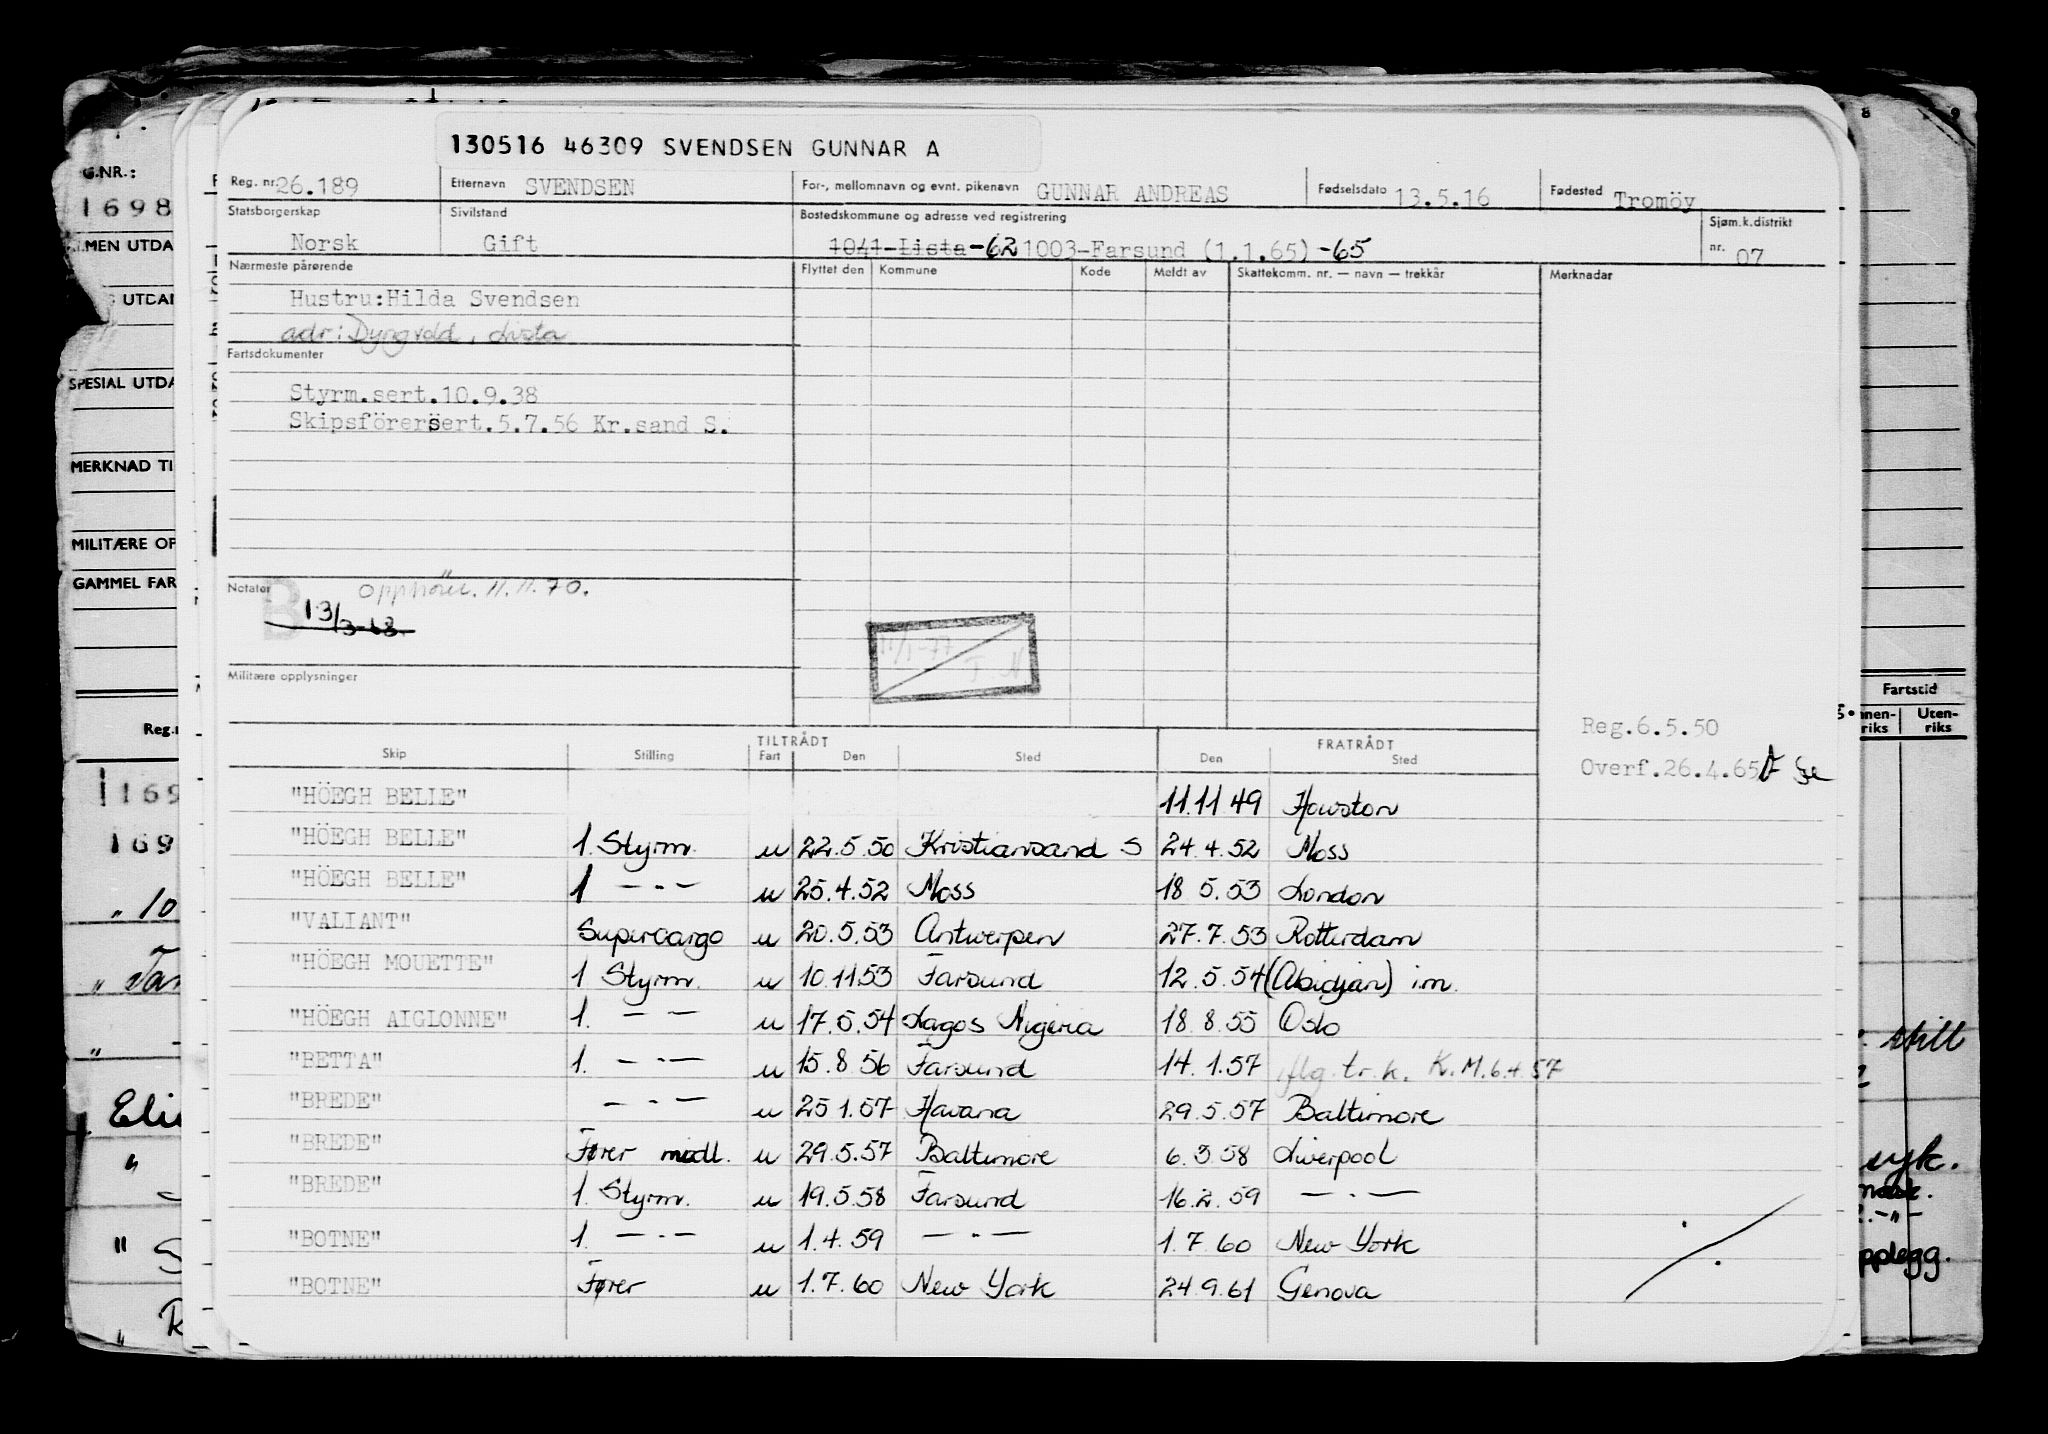 130516 46309 SVENDSEN GUNNAR A
Reg. nr. 26.189 Etternavn SVENDSEN For-, mellomnavn og evnt. pikenavn GUNNAR ANDREAS Fødselsdato 13.5.16 Fødested Tromöy
Statsborgerskap Norsk Sivilstand Gift Bostedskommune og adresse ved registrering 1041-Lista-62 1003-Farsund (1.1.65)-65 Sjøm.k.distrikt nr. 07
Nærmeste pårørende Flyttet den Kommune Kode Meldt av Skattekomm. nr. — navn — trekkår Merknadar
Hustru:Hilda Svendsen
adr: Dyngvold, Lista
Fartsdokumenter
Styrm.sert.10.9.38
Skipsförersert.5.7.56 Kr.sand S.
Notater B opphører 11.11.70.
13/3-68
Militære opplysninger
Reg.6.5.50
Overf.26.4.65
TILTRÅDT FRATRÅDT
Skip Stilling Fart Den Sted Den Sted
"HÖEGH BELLE" 11.11 49 Houston
"HÖEGH BELLE" 1. Styrm. u 22.5.50 Kristiansand S 24.4.52 Moss
"HÖEGH BELLE" 1 —·— u 25.4.52 Moss 18 5.53 London
"VALIANT" Supercargo u 20.5.53 Antwerpen 27.7.53 Rotterdam
"HÖEGH MOUETTE" 1 Styrm. u 10.11.53 Farsund 12.5.54 (Abidjan) i.m.
"HÖEGH AIGLONNE" 1. — — u 17.5.54 Lagos Nigeria 18.8.55 Oslo
"BETTA" 1. —·— u 15.8 56 Farsund 14.1.57 iflg. tr.k. K.M.6.4.57
"BREDE" —·— u 25 1.57 Havana 29.5.57 Baltimore
"BREDE" Fører midl. u 29.5.57 Baltimore 6.3.58 Liverpool
"BREDE" 1. Styrm. u 19.5.58 Farsund 16.2.59 —·—
"BOTNE" 1. —·— u 1.4.59 —·— 1.7 60 New York
"BOTNE" Fører u 1.7.60 New York 24.9.61 Genova
G.NR.:
1698
SPESIAL UTDA
MERKNAD TI
MILITÆRE OP
GAMMEL FAR
169
169
" 10
Fartstid
Uten-
riks
still
syk.